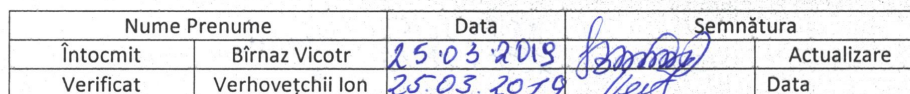 Nume Prenume Data Semnătura
Întocmit Bîrnaz Vicotr 25.03.2019 Actualizare
Verificat Verhovețchii Ion 25.03.2019 Data